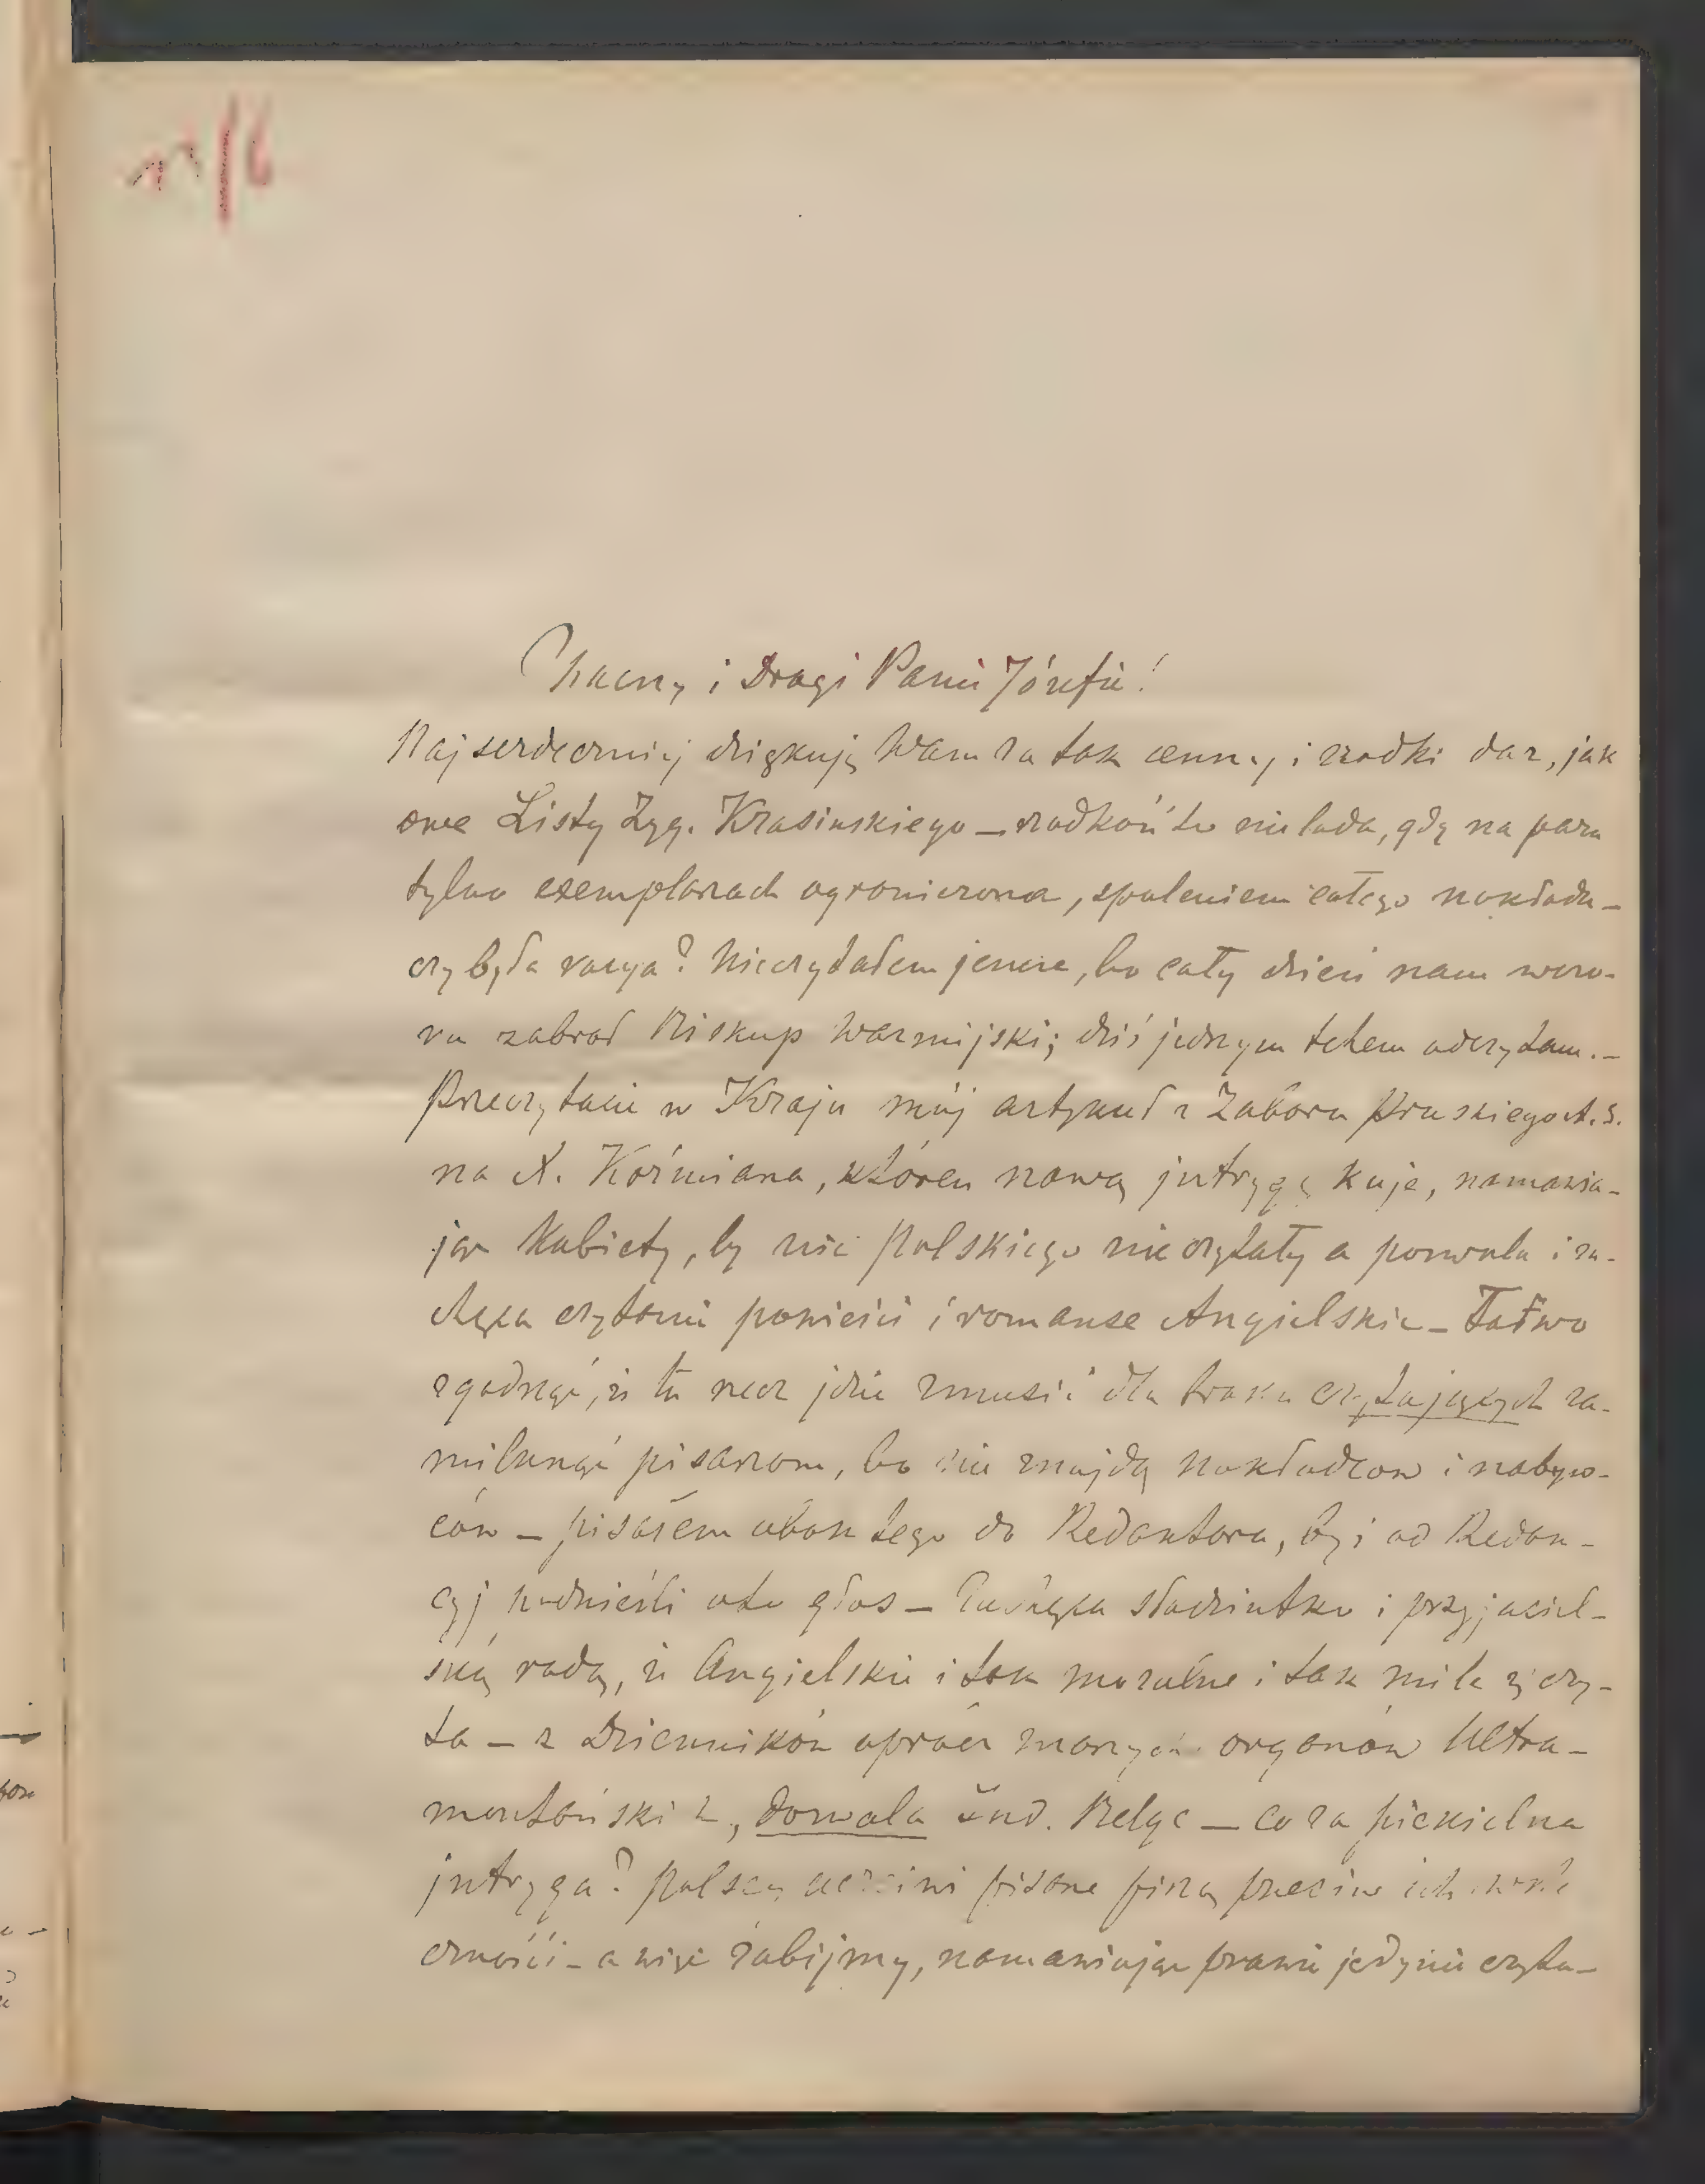 Zacny i Drogi Panie Józefie!
Najserdeczniej dziękuję Wam za tak cenny i rzadki dar, jak
owe Listy Zyg. Krasinskiego – rzadkość to nielada, gdy na paru
tylko exemplarzach ograniczona, spaleniem całego nakładu –
czy była racya? Nieczytałem jeszcze, bo cały dzień nam wczo-
ra zabrał Biskup Warmijski; dziś jednym tchem odczytam. –
Przeczytacie w Kraju mój artykuł z Zaboru Pruskiego A. S.
na X. Koźmiana, któren nową jntrygę kuje, namawia-
jąc Kobiety, by nic polskiego nie czytały a pozwala i za-
chęca czytanie powieści i romanse Angielskie – Łatwo
zgadnąć, iż tu rzecz jdzie zmusić dla braku czytających za-
milknąć pisarzom, bo nie znajdą nakładcow i nabyw-
ców – pisałem obok tego do Redaktora, by i od Redak-
cyj podnieśli oto głos – słodziutko i przyjaciel-
ską radą, iż Angielskie i tak moralne i tak mile się czy-
ta – z Dzienników oprócz organów Ultra-
montańskich, dozwala Ind. Belge – co za piekielna
jntryga? polscy piszą przeciw ich
czności – a więc zabijmy, namawiając prawie jedynie czyta-